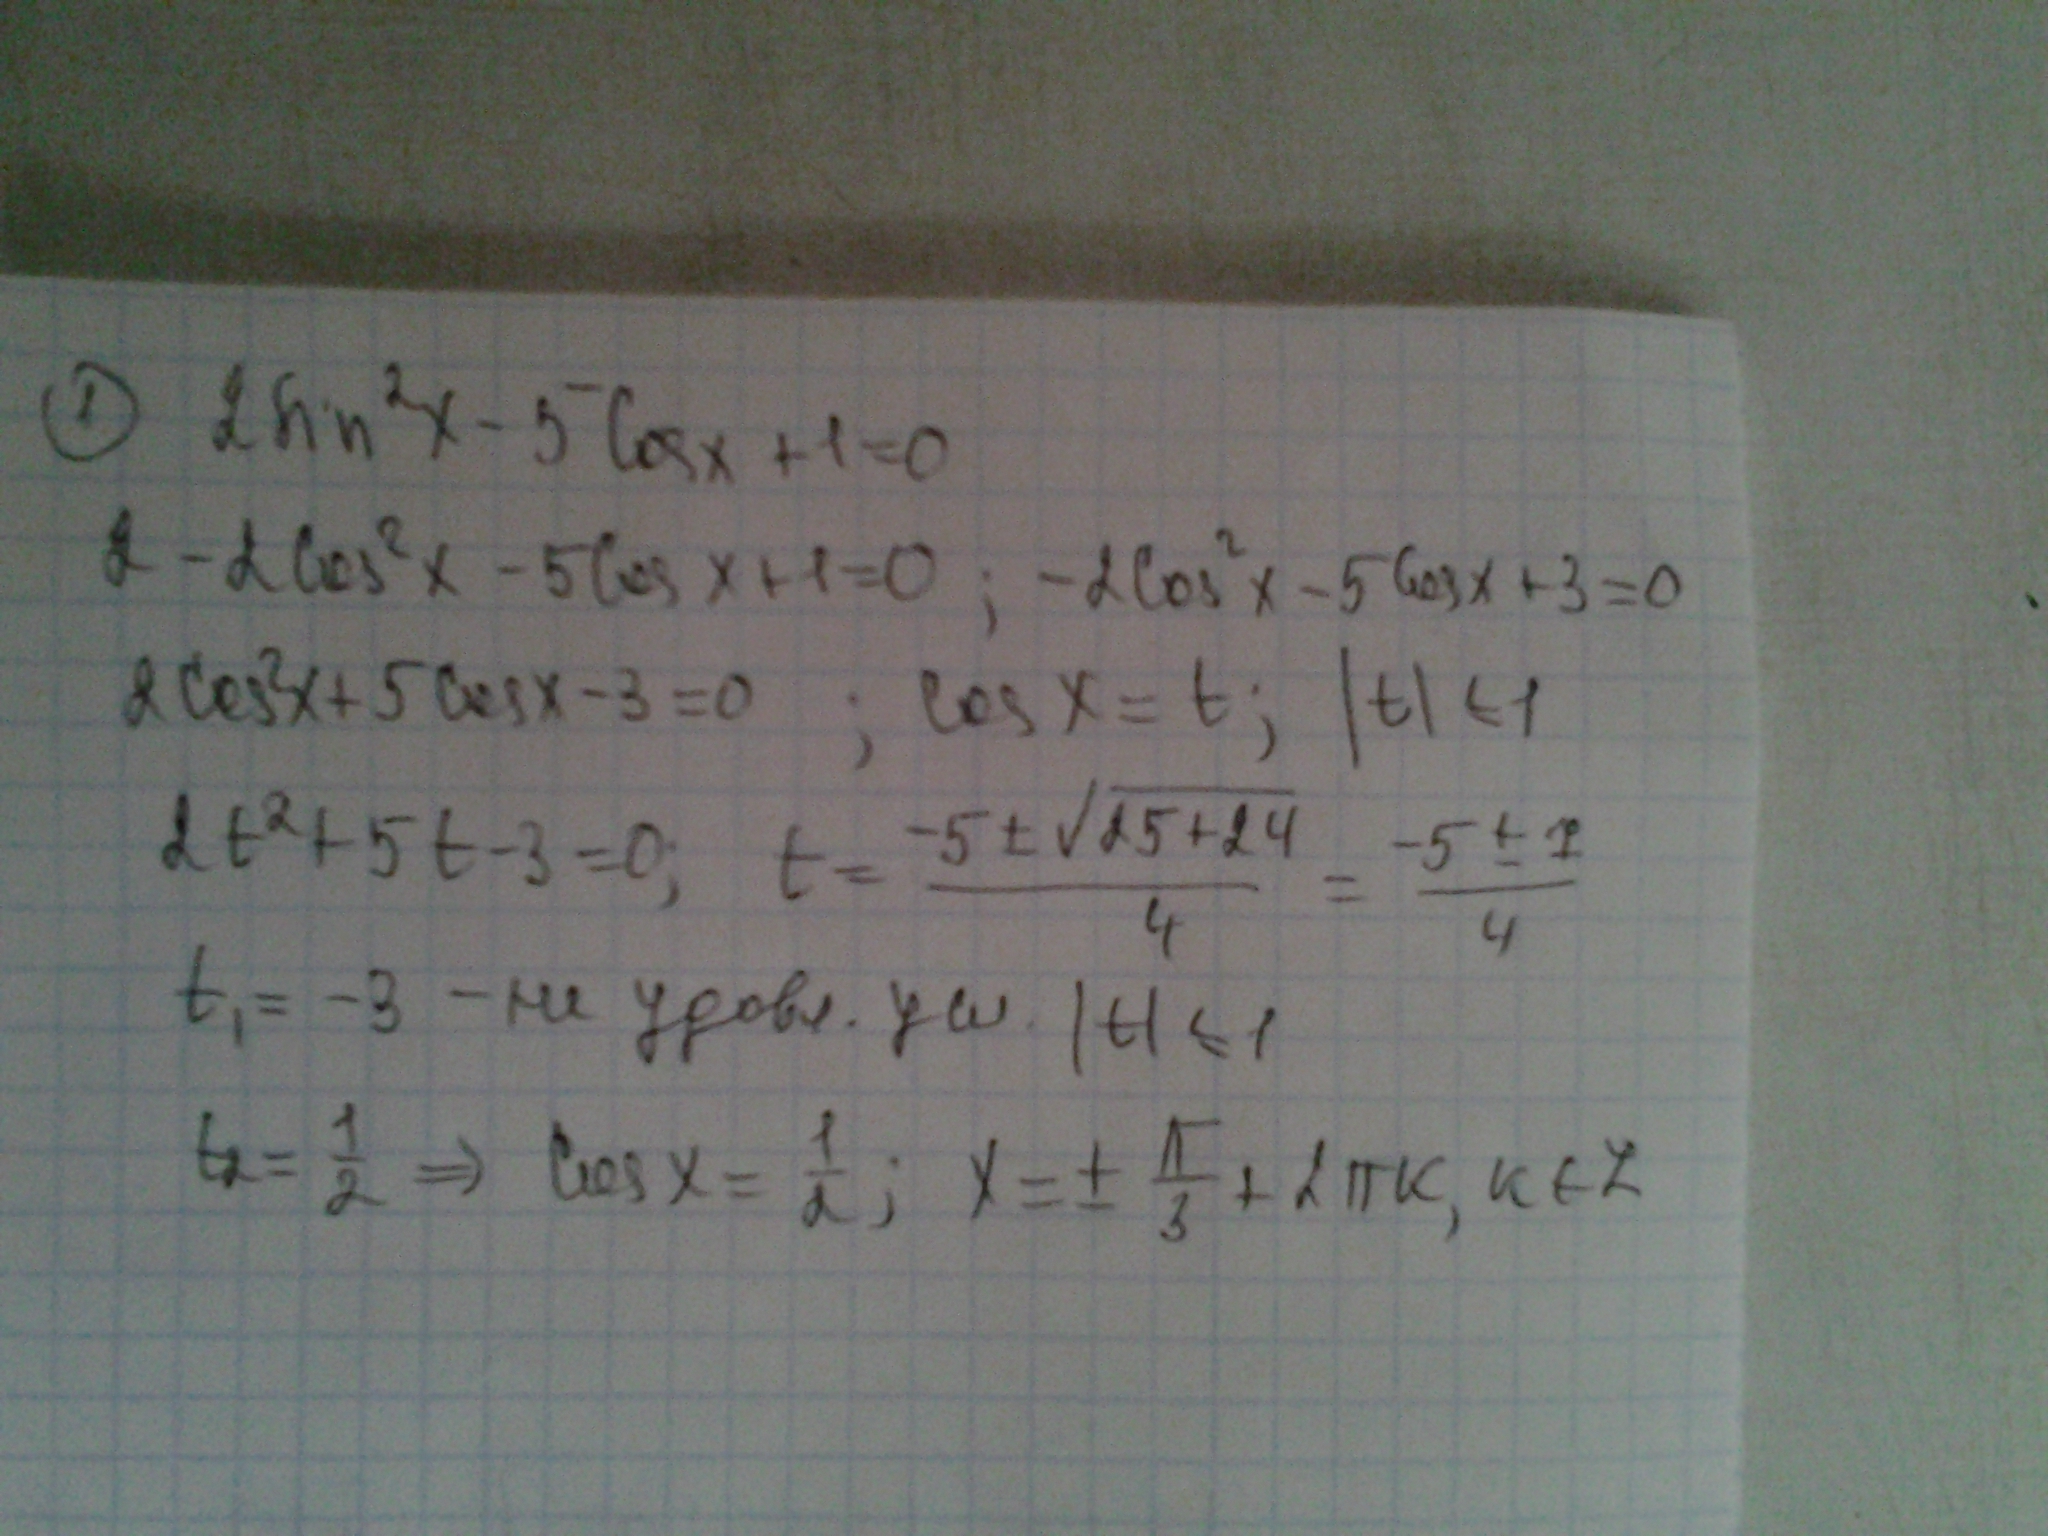 ① 2sin²x - 5cosx + 1 = 0
2 - 2cos²x - 5cosx + 1 = 0 ; -2cos²x - 5cosx + 3 = 0
2cos²x + 5cosx - 3 = 0 ; cosx = t; |t| ≤ 1
2t² + 5t - 3 = 0; t = (-5 ± √(25+24))/4 = (-5 ± 7)/4
t₁ = -3 - не удовл. усл. |t| ≤ 1
t₂ = 1/2 ⇒ cosx = 1/2; x = ± π/3 + 2πк, к ∈ Z